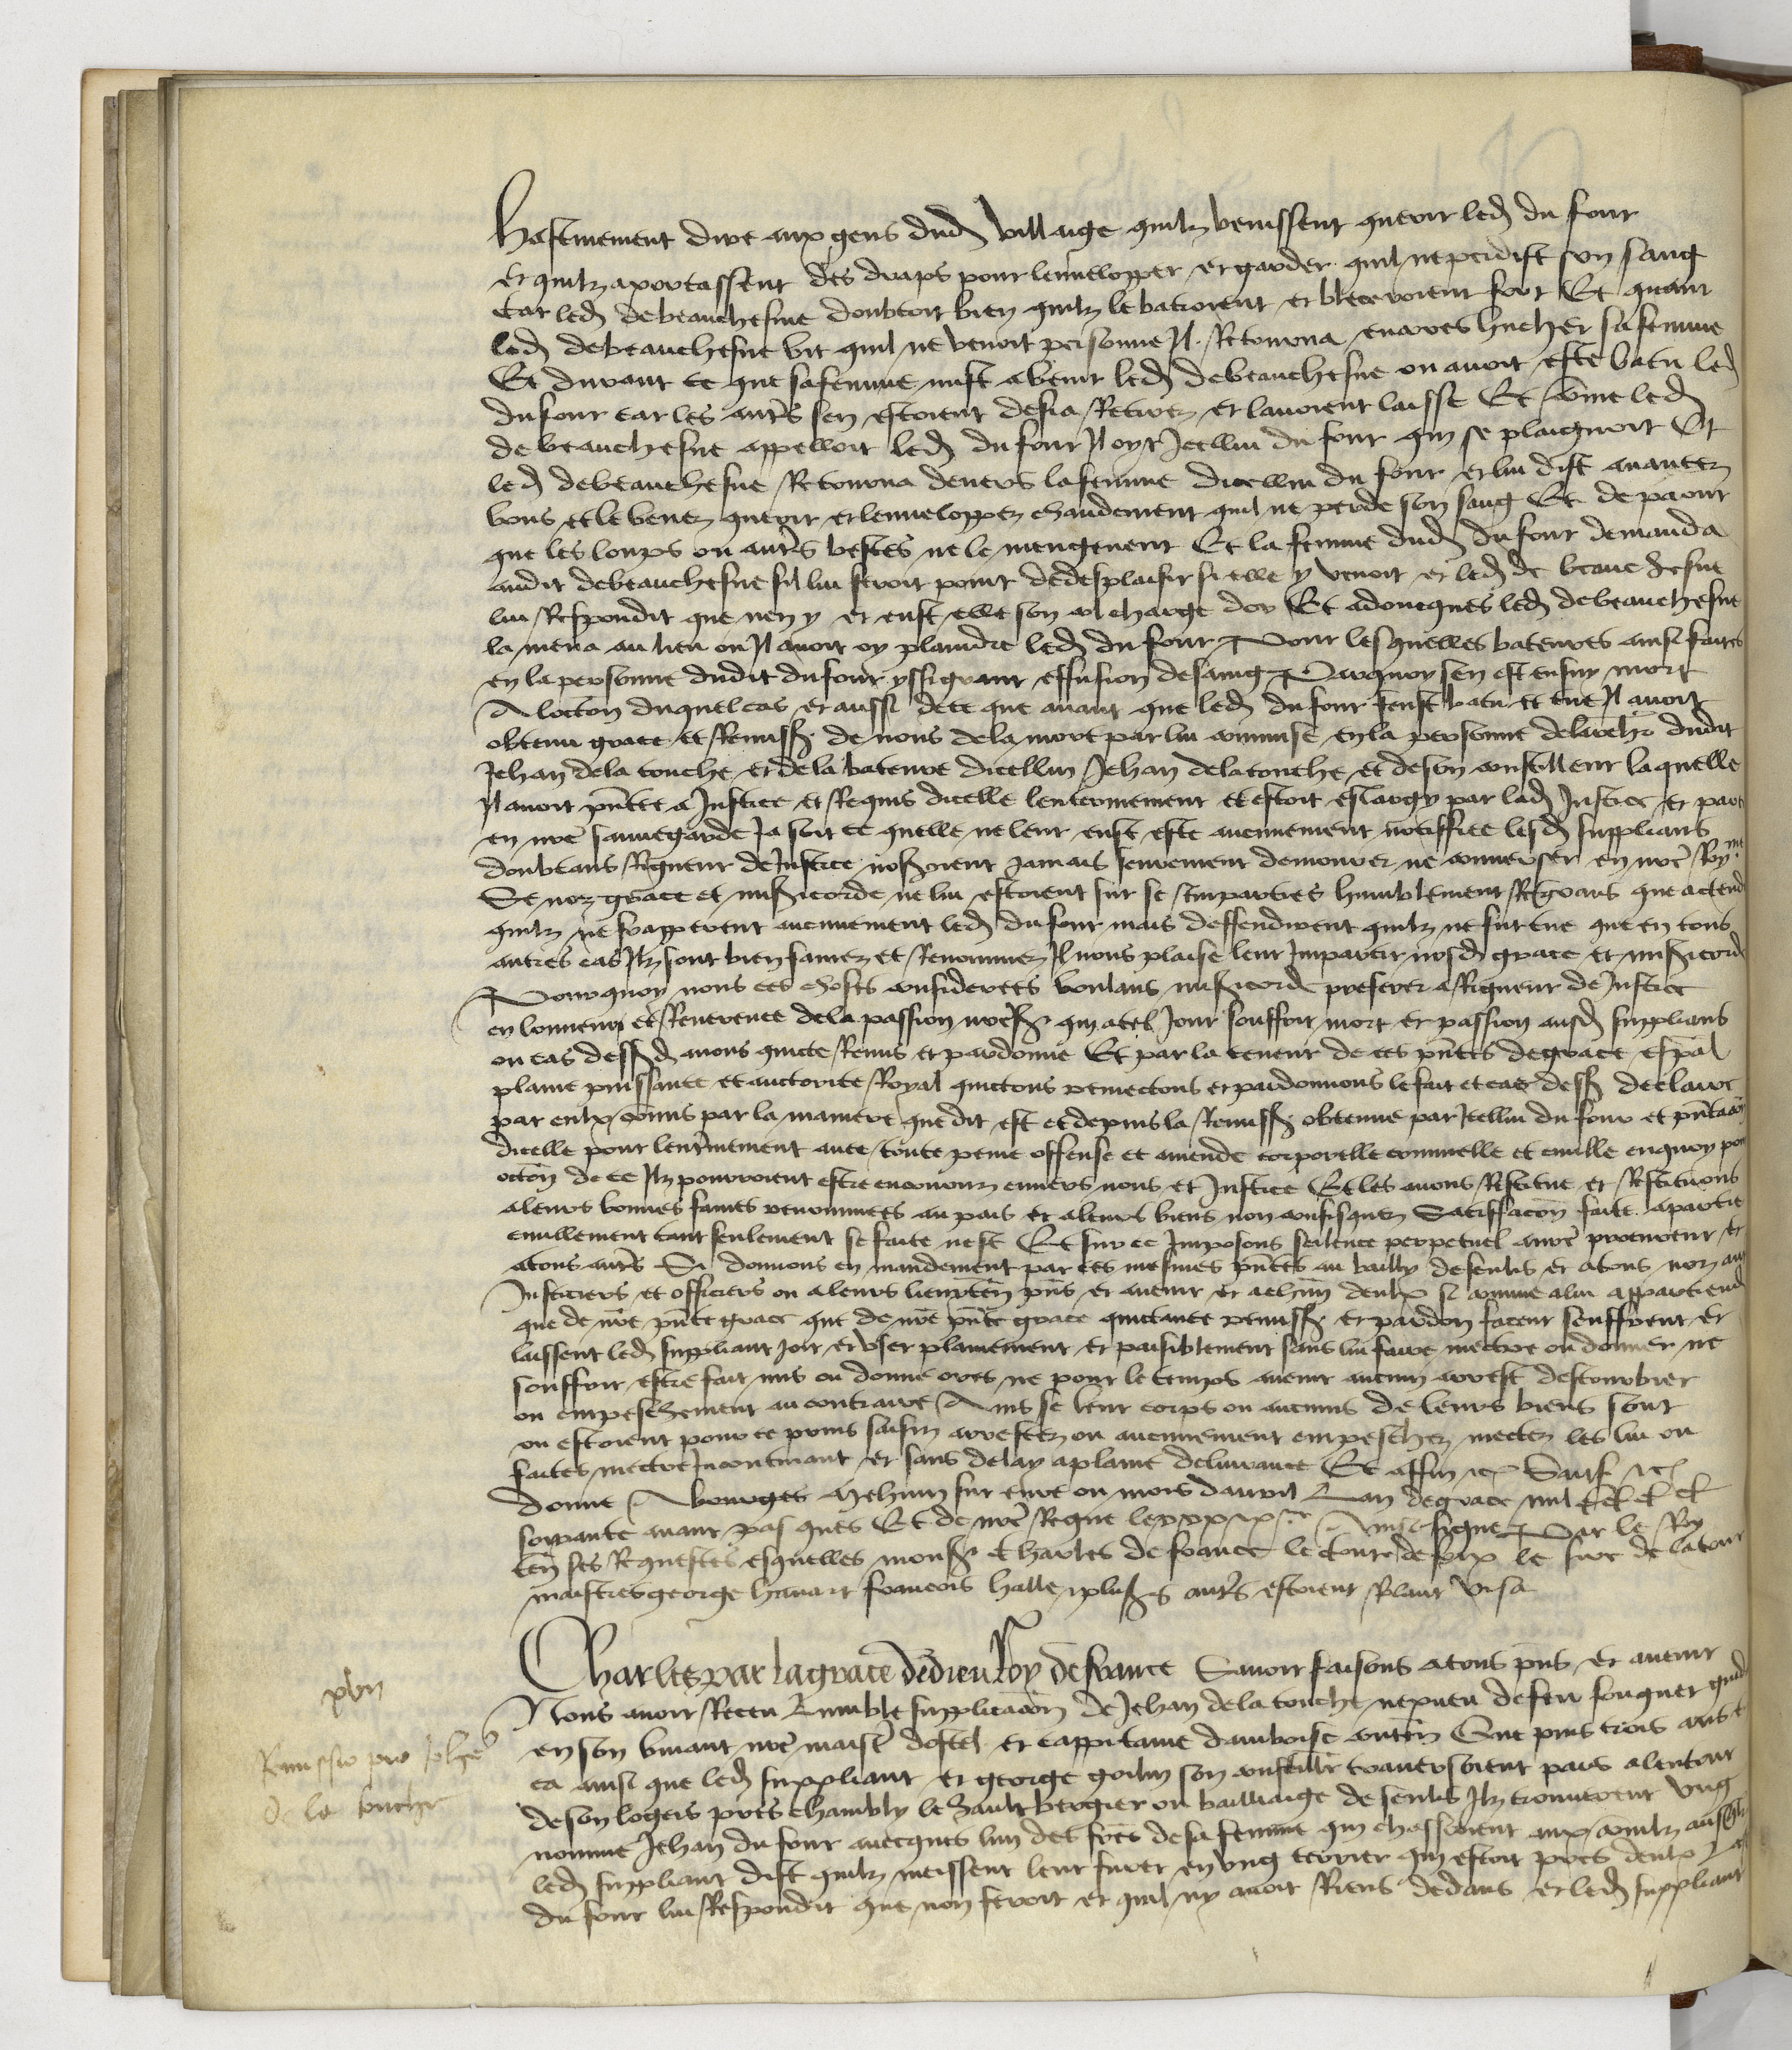 hastivement dire aux gens dud villaige quilz venissent querir led du four
et quilz aportassent des draps pour lenveloper et garder quil ne perdist son sang
Car led debeauchesne doubtoit bien quilz le batroient et bleceroient fort Et quant
led debeauchesne vit quil ne venoit personne Il Retourna encores hucher sa femme
Et durant ce que sa femme mist a venir led debeauchesne ou avoit este batu led
du four car les autrs sen estoient desia Retirez et lavoient laisse Et come led
de beauchesne appelloit led du four Il oyt Icellui du four qui se plaignoit Et
led debeauchesne Retourna devers la femme dicellui du four et lui dist avancez
vous et le venez querir et lenvelopez chaudement quil ne perde son sang Et de paour
que les loups ou autrs bestes ne le mengeuent Et la femme dud du four demanda
audit debeauchesne sil lui feroit point de desplaisir si elle y venoit et led de beauchesne
lui Respondit que nen y et eust elle son col charge dor Et adoncques led debeauchesne
la mena au lieu ou Il avoit oy plaindre led du four Pour lesquelles bateures ainsi faites
en la personne dudit du four yssi grant effusion de sang Parquoy sen est ensuy mort
A locion duquel cas et aussi de ce que avant que led du four feust batu et tue Il avoit
obtenu grace et Remiss de nous de la mort par lui commise en la personne de larchr dudit
Jehan de la touche et de la bateure dicellui Jehan de la touche et de son coustillier laquelle
Il avoit pntee a Justice et Requis dicelle lenterinement et estoit eslargy par lad Justice et par
en nre sauvegarde Ja soit ce quelle ne leur eust este aucunement notiffiee lesd supplians
doubtans Rigueur de Justice noseroient jamais seurement demourer ne converser en nre Roymе
Se noz grace et misericorde ne lui estoient sur se Imparties humblement Requerans que actend
quilz ne fraperent aucunement led du four mais deffendirent quilz ne fut tue que en tous
autres cas Ilz sont bien famez et Renommez Il nous plaise leur Impartir nosd grace et misericord
Pourquoy nous ces choses considerees voulans misericorde preferer a Rigueur de Justice
en lonneur et Reverence de la passion nres qui a tel Jour souffrit mort et passion ausd supplians
ou cas dessd avons quicte Remis et pardonne Et par la teneur de ces pntes de grace espal
plaine puissance et auctorite Royal quictons remectons et pardonnons le fait et cas dess declaire
par eulx comis par la maniere que dit est et depuis la Remiss obtenue par Icellui du four et pntacon
dicelle pour lentrinement avec toute peine offense et amende corporelle criminelle et civille enquoy pour
ocion de ce Ilz pourroient estre encouruz envers nous et Justice Et les avons Restitue et Restituons
a leurs bonnes fames renommees au pais et a leurs biens non confisquez Satiffacon faite a partie
civillement tant seulement se faite nest Et sur ce Imposons scilence perpetuel a nre procureur et
a tous autrs Si donnons en mandement par ces mesmes pntes au bailly de senlis et a tous noz aut
Justiciers et officiers ou a leurs lieuxten pns et avenir et a chun deulx si comme a lui appartiend
que de nre pnte grace que de nre pnte grace quictance remiss et pardon facent seuffrent et
laissent led suppliant joir et user plainement et paisiblement sans lui faire mectre ou donner ne
souffrir estre fait mis ou donne ores ne pour le temps avenir aucun arrest destourbier
ou empeschement au contraire Ains se leur corps ou aucuns de leurs biens sont
ou estoient pour ce prins saisiz arrestez ou aucunement empeschez mectez les lui ou
faites mectre Incontinant et sans delay a plaine delivrance Et affin etc Sauf etc
Donne A bourges mehun sur evre ou mois davril Lan de grace mil cccc
soixante avant pasques Et de nre Regne le xxxixe Ainsi signe Par le Roy
ten ses Requestes esquelles mons Charles de france le conte de foix le sire de la tour
maistres george havart francois halle et pluss autrs estoient Rolant Visa
Charles par la grace de dieu Roy de france Savoir faisons a tous pns et avenir
Nous avoir Receu lumble supplicacon de Jehan de la touche nepveu de feu fouquet guid
en son vivant nre maistr dostel et cappitaine damboise conten Que puis trois ans
ca ainsi que led suppliant et george goilm son coustillr traversoient pais a lentour
de son logeis pres chambly le hault bergier ou bailliaige de senlis Ilz trouverent ung
nomme Jehan du four avecques lun des freres de sa femme qui chassoient aux connilz ausqlz
led suppliant dist quilz meissent leur furet en ung terrier qui estoit pres deulx
du four lui Respondit que non feroit et quil ny avoit Riens dedans et led suppliant
xlvii
Remissio pro Johe
de la touche